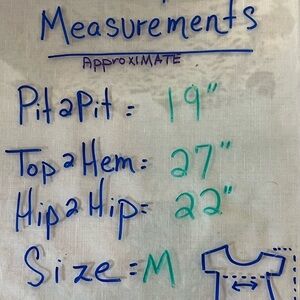 Measurements
APPROXIMATE
Pit2Pit = 19"
Top2Hem = 27"
Hip2Hip = 22"
Size = M